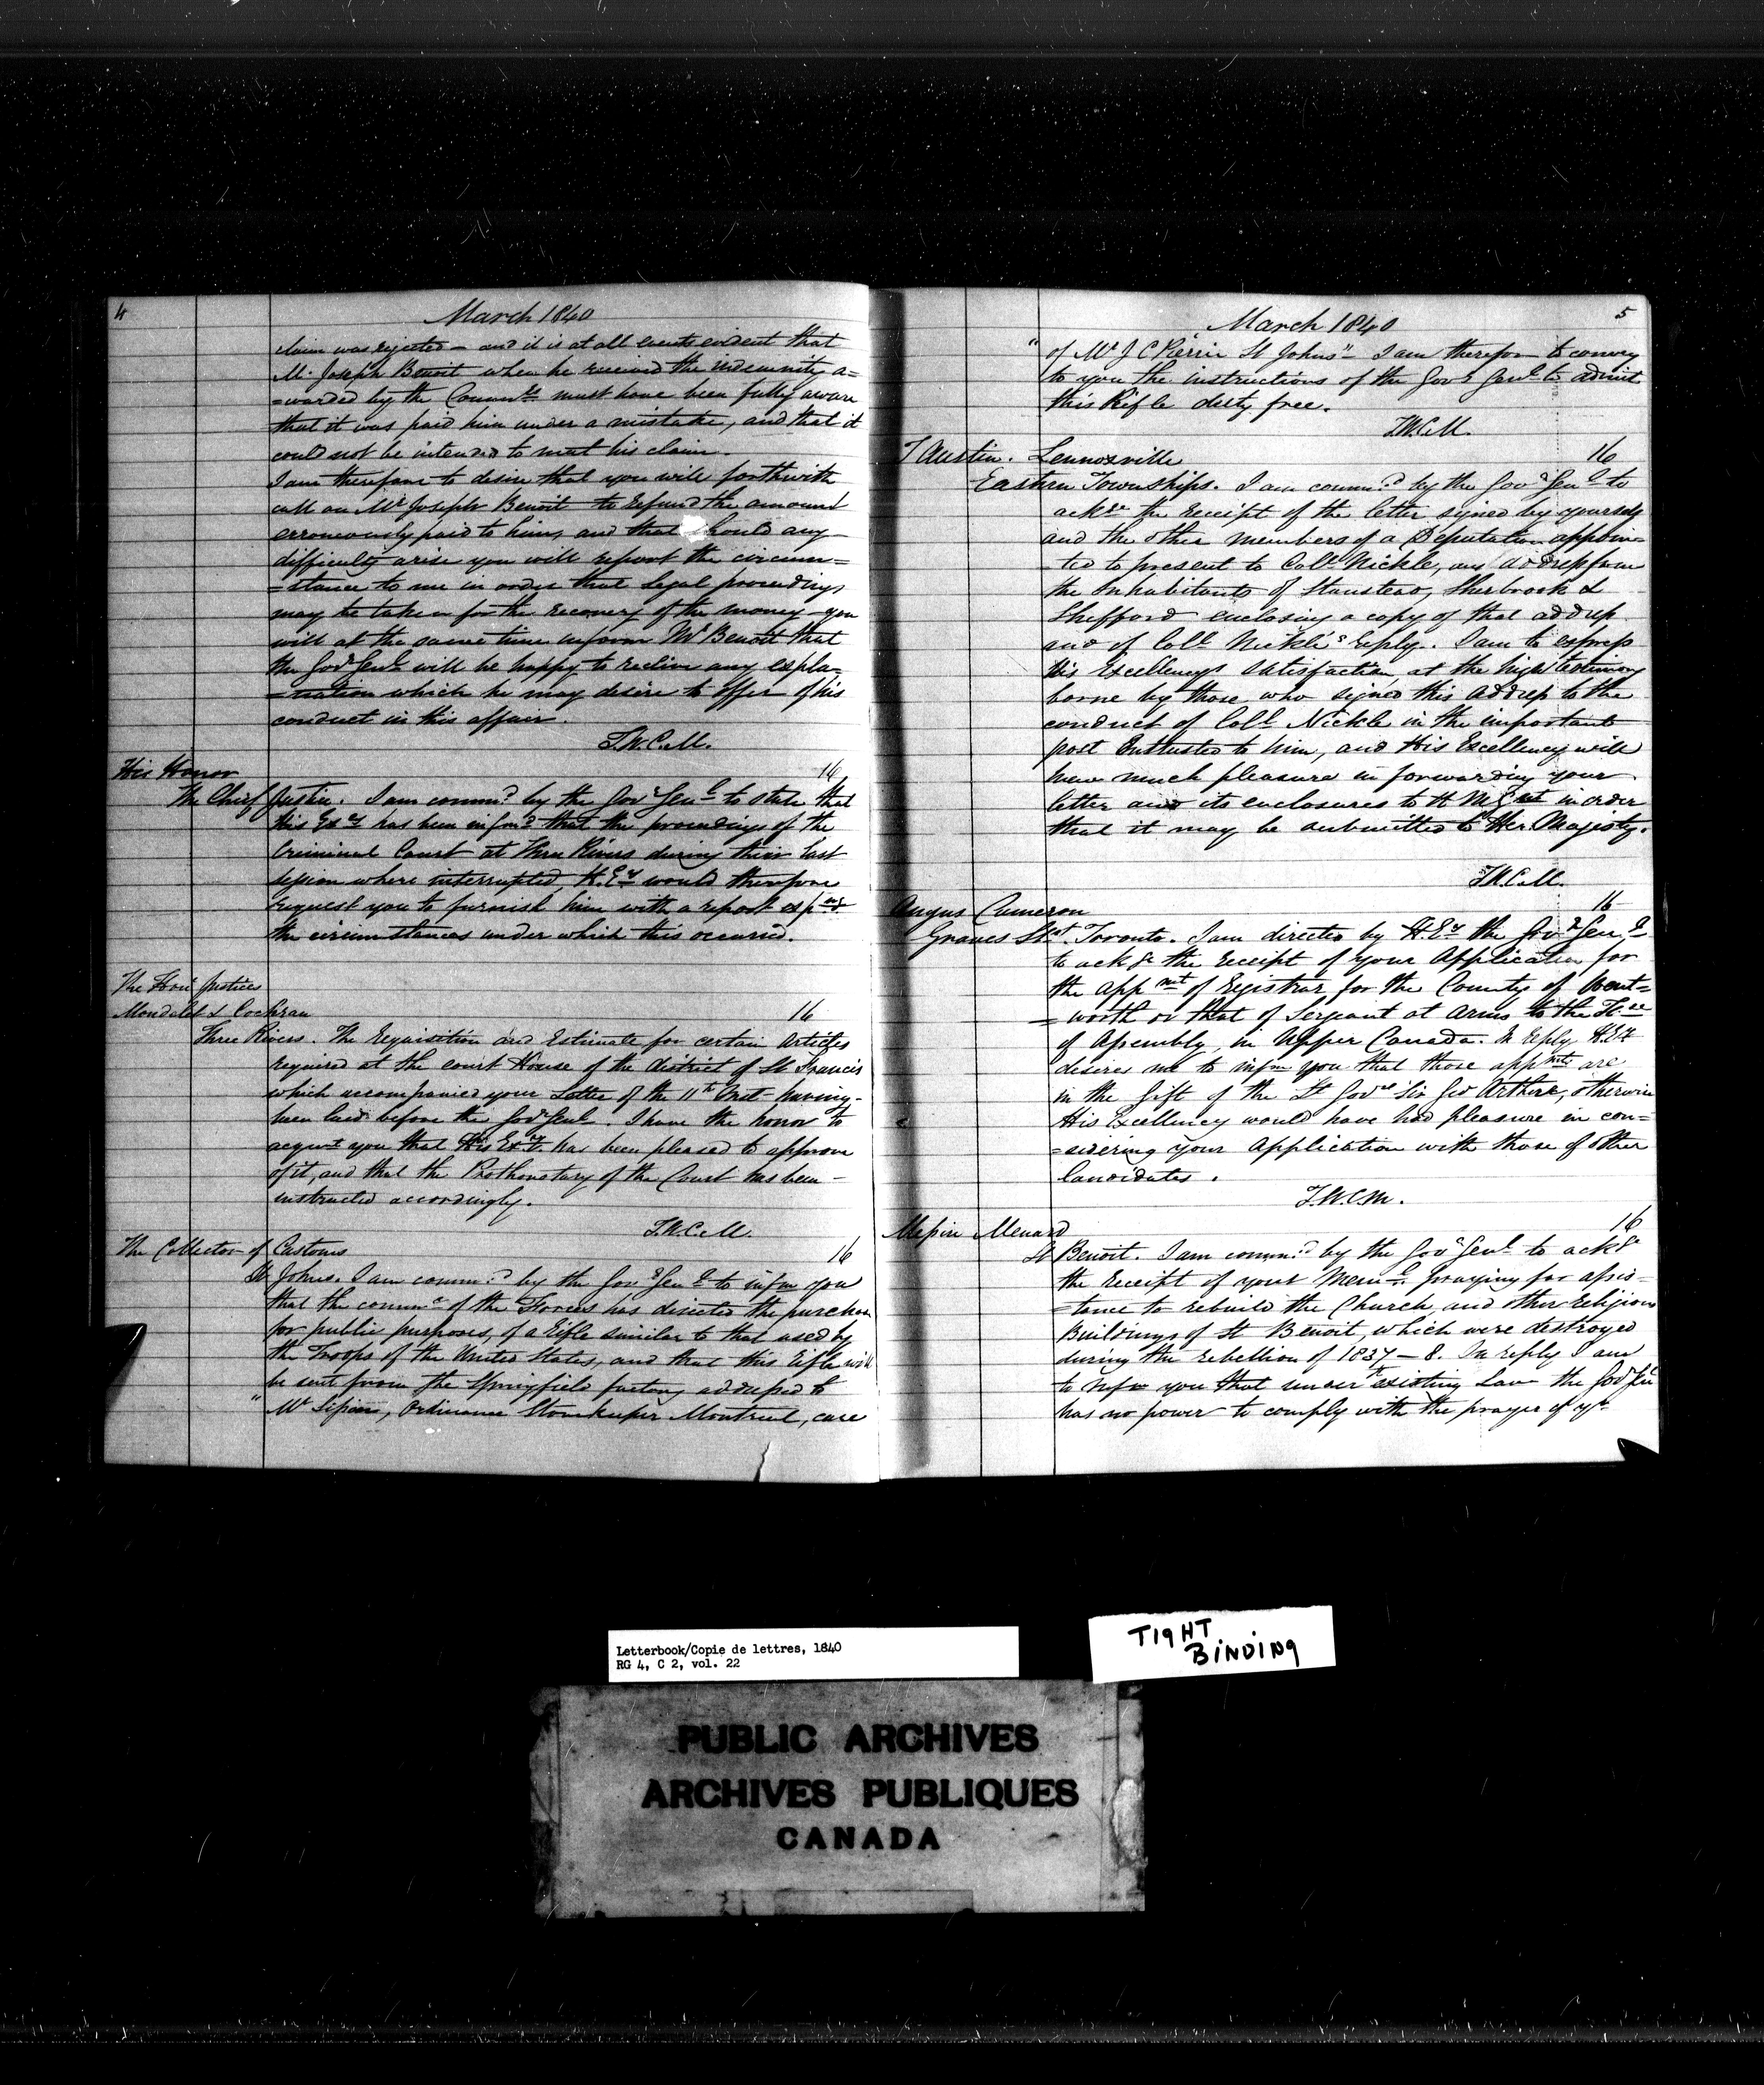 4
March 1840
claim was rejected – and it is at all events evident that
Mr. Joseph Benoit when he received the indemnity a=
=warded by the Commrs must have been fully aware
that it was paid him under a mistake, and that it
could not be intended to meet his claim.
I am therefore to desire that you will forthwith
call on Mr Joseph Benoit to refund the amount
erroneously paid to him, and that should any
difficulty arise you will report the circum=
=stance to me in order that legal proceedings
may be taken for the recovery of the money – you
will at the same time inform Mr Benoit that
the Govr Genl will be happy to receive any expla=
=nation which he may desire to offer of his
conduct in this affair.
T.W.C.M.
His Honor 16
The Chief Justice. I am commd by the Govr Genl to state that
His Exy has been infmd that the proceedings of the
Criminal Court at Three Rivers during their last
session where interrupted, H.Ey would therefore
request you to furnish him with a report
the circumstances under which this occurred.
The Honl Justices
Mondelet & Cochran 16
Three Rivers. The Requisition and Estimate for certain Articles
required at the court House of the district of St Francis
which accompanied your Letter of the 11th Inst – having –
been laid before the Govr Genl. I have the honor to
acqunt you that His Exy. has been pleased to approve
of it, and that the Prothonotary of the Court has been –
instructed accordingly.
T.W.C.M.
The Collector of Customs 16
St Johns. I am commd by the Govr Genl to infm you
that the commr of the Forces has directed the purchase
for public purposes, of a Rifle similar to that used by
the Troops of the United States, and that this Rifle will
be sent from the Springfield factory addressed to
" Mr , Ordinance Storekeeper Montreal, care
5
March 1840
" of Mr J C Pierrie St Johns" – I am therefore to convey
to you the instructions of the Govr Genl to admit
this Rifle duty free.
T.W.C.M.
T Austin. Lennoxville 16
Eastern Townships. I am commd by the Govr Genl to
ackge the receipt of the letter signed by yourself
and the other members of a Deputation appoin=
=ted to present to Coll. Nickle, an address from
the Inhabitants of Stanstead, Sherbrook &
Shefford enclosing a copy of that address
and of Coll Nickle's reply. I am to express
His Excellency's satisfaction, at the high testimony
borne by those who signed this address to the
conduct of Coll Nickle in the important
post Entrusted to him, and His Excellency will
have much pleasure in forwarding your
letter and its enclosures to H M Gt in order
that it may be submitted to Her Majesty.
T.W.C.M.
Angus Cameron 16
Graves Stt. Toronto. I am directed by H.Ey the Govr Genl
to ackge the receipt of your Application for
the appmt of Registrar for the County of Went=
=worth or that of Serjeant at Arms to the Hse
of Assembly, in Upper Canada. In reply, H.Ey
desires me to infm you that those appmts are
in the gift of the Lt Govr Sir Geo Arthur, otherwise
His Excellency would have had pleasure in con=
=sidering your Application with those of other
Candidates.
T.W.C.M.
Messire Menard 16
St Benoit. I am commd by the Govr Genl to ackge
the receipt of your Meml. praying for assis=
=tance to rebuild the Church, and other religious
Buildings of St Benoit, which were destroyed
during the rebellion of 1837 – 8. In reply I am
to infm you that under existing Law the Govr Gnl
has no power to comply with the prayer of yr
Letterbook/Copie de lettres, 1840
RG 4, C 2, vol. 22
TIGHT
BINDING
PUBLIC ARCHIVES
ARCHIVES PUBLIQUES
CANADA